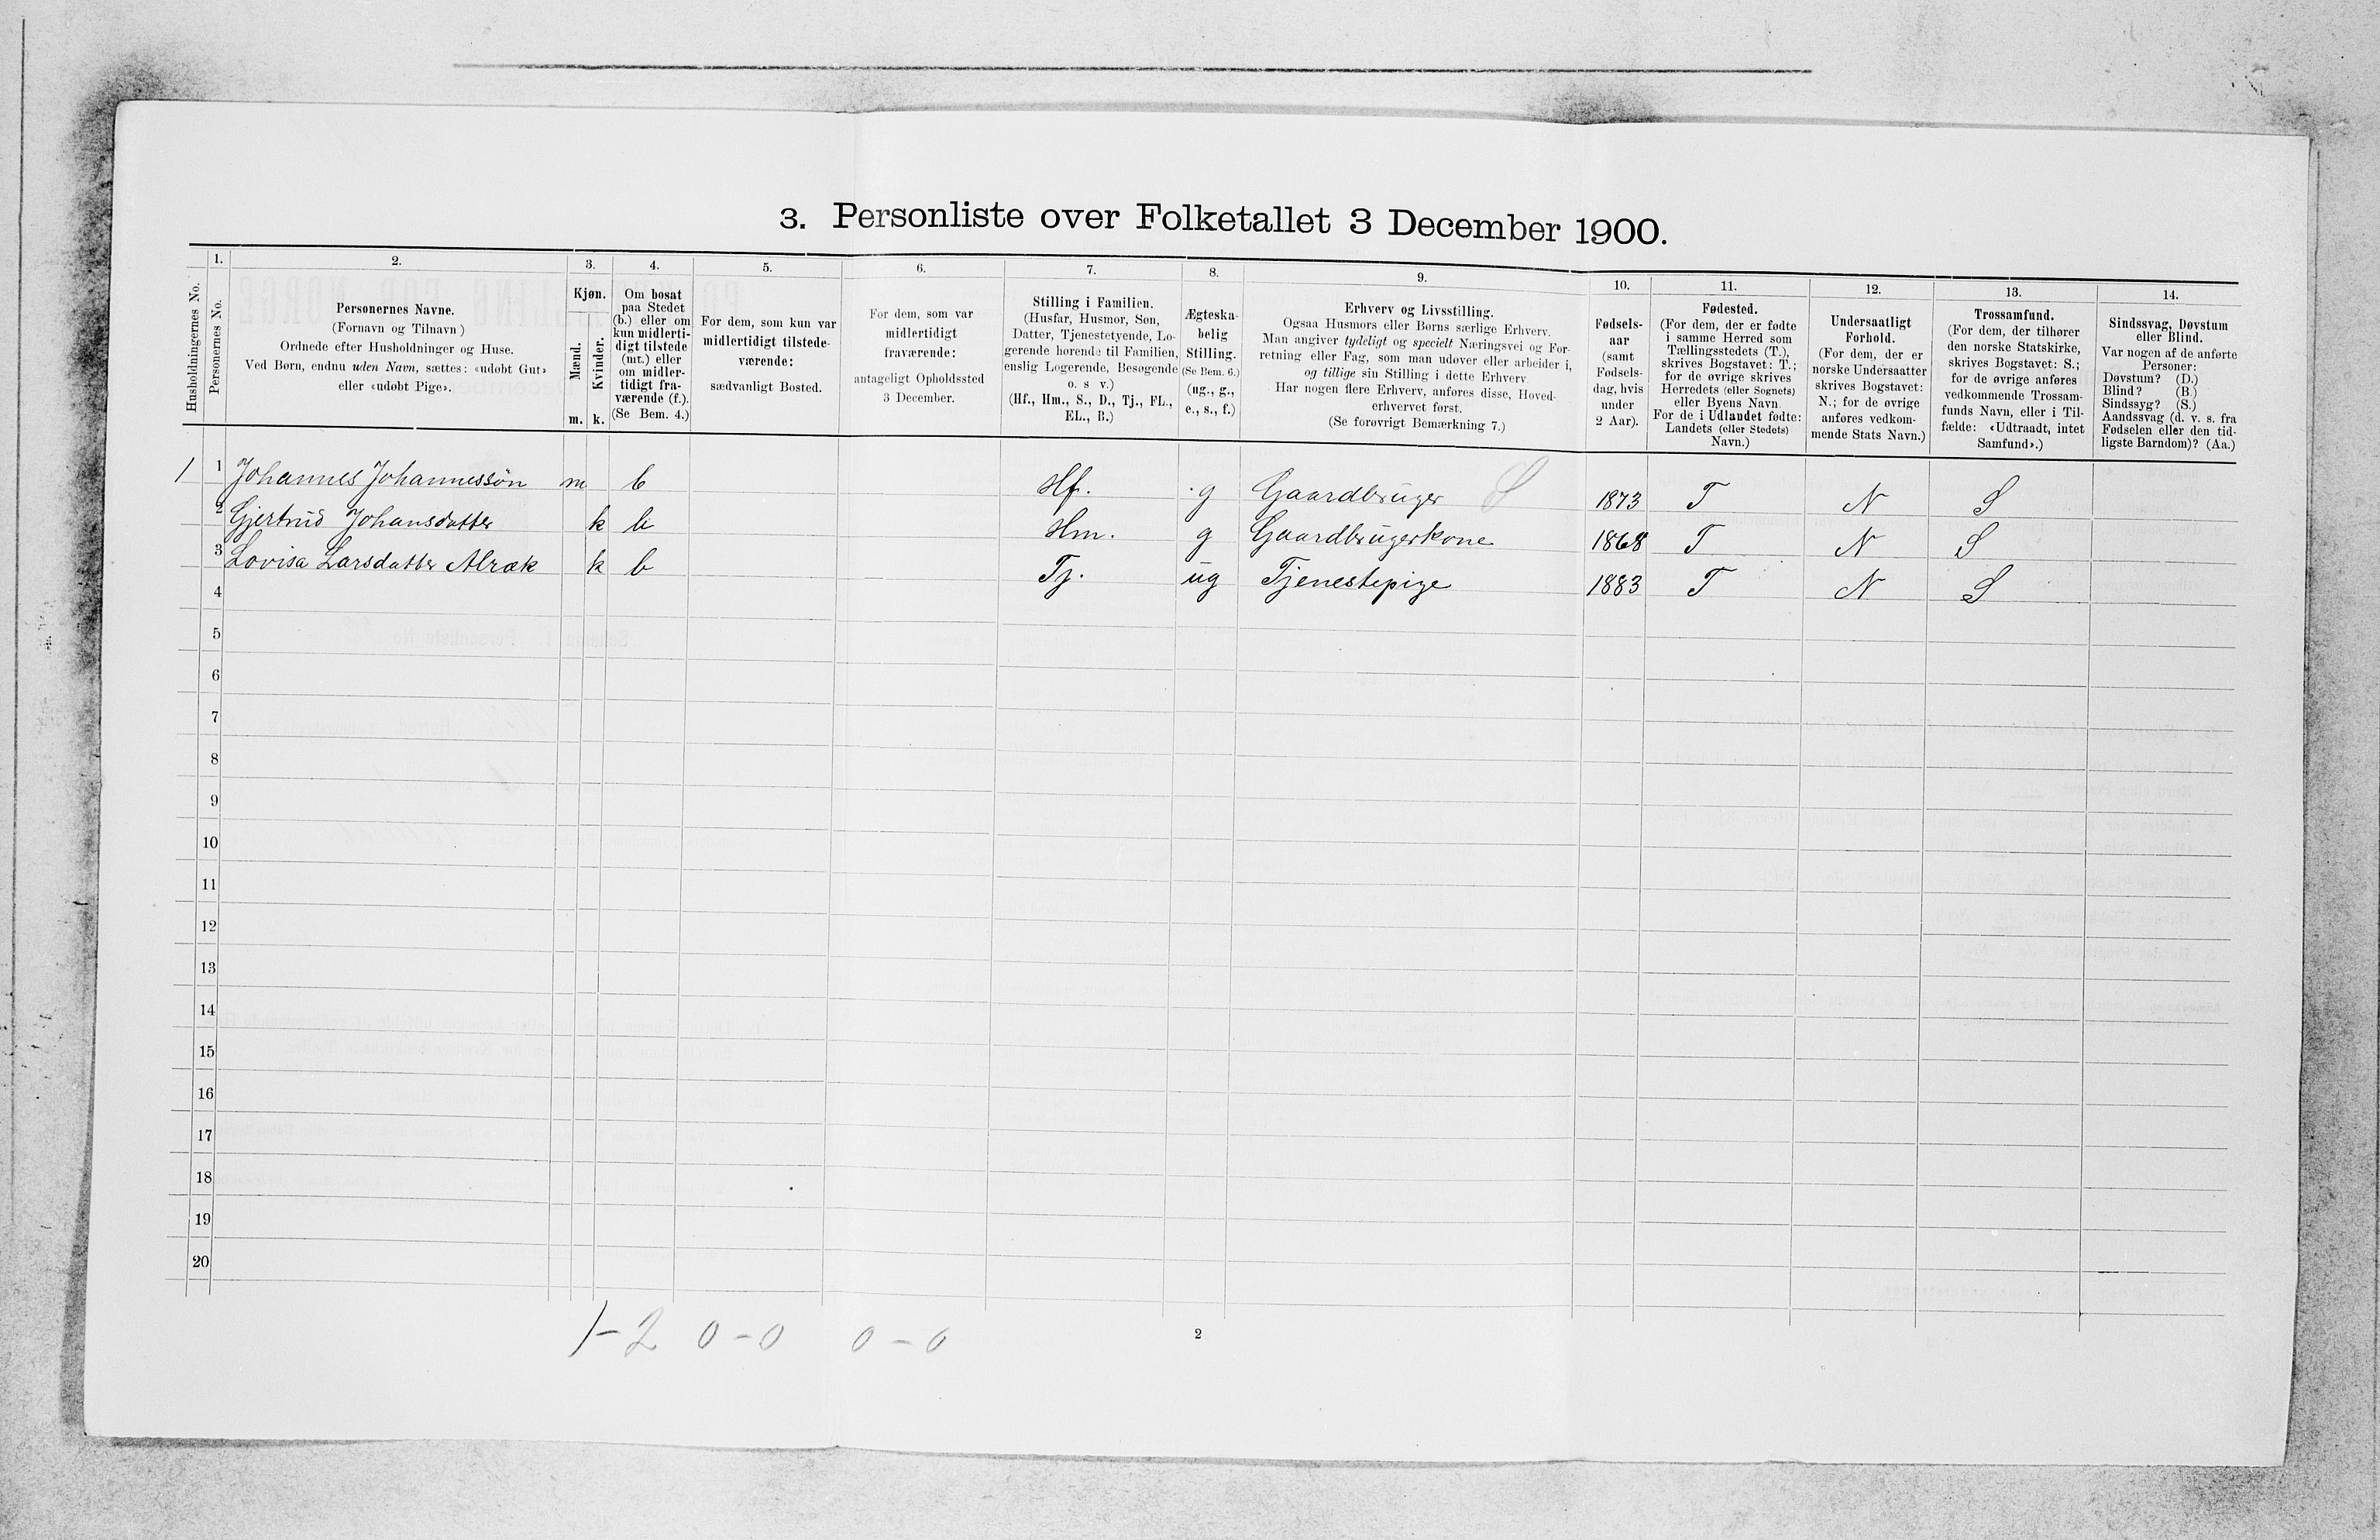 3. Personliste over Folketallet 3 December 1900.
Husholdningernes No.
1.
Personernes No.
2.
Personernes Navne.
(Fornavn og Tilnavn)
Ordnede efter Husholdninger og Huse.
Ved Børn, endnu uden Navn, sættes: «udøbt Gut»
eller «udøbt Pige».
3.
Kjøn.
Mænd.
Kvinder.
m. k.
4.
Om bosat
paa Stedet
(b.) eller om
kun midlerti-
digt tilstede
(mt.) eller
om midler-
tidigt fra-
værende (f.).
(Se Bem. 4.)
5.
For dem, som kun var
midlertidigt tilstede-
værende:
sædvanligt Bosted.
6.
For dem, som var
midlertidigt
fraværende:
antageligt Opholdssted
3 December.
7.
Stilling i Familien.
(Husfar, Husmor, Søn,
Datter, Tjenestetyende, Lo-
gerende hørende til Familien,
enslig Logerende, Besøgende
o. s v.)
(Hf., Hm., S., D., Tj., FL.,
EL., B.)
8.
Ægteska-
belig
Stilling.
(Se Bem. 6.)
(ug., g.,
e., s., f.)
9.
Erhverv og Livsstilling.
Ogsaa Husmors eller Børns særlige Erhverv.
Man angiver tydeligt og specielt Næringsvei og For-
retning eller Fag, som man udøver eller arbeider i,
og tillige sin Stilling i dette Erhverv.
Har nogen flere Erhverv, anføres disse, Hoved-
erhvervet først.
(Se forøvrigt Bemærkning 7.)
10.
Fødsels-
aar
(samt
Fødsels-
dag, hvis
under
2 Aar).
11.
Fødested.
(For dem, der er fødte
i samme Herred som
Tællingsstedets (T.),
skrives Bogstavet: T.;
for de øvrige skrives
Herredets (eller Sognets)
eller Byens Navn.
For de i Udlandet fødte:
Landets (eller Stedets)
Navn.)
12.
Undersaatligt
Forhold.
(For dem, der er
norske Undersaatter
skrives Bogstavet:
N.; for de øvrige
anføres vedkom-
mende Stats Navn.)
13.
Trossamfund.
(For dem, der tilhører
den norske Statskirke,
skrives Bogstavet: S.;
for de øvrige anføres
vedkommende Trossam-
funds Navn, eller i Til-
fælde: «Udtraadt, intet
Samfund».)
14.
Sindssvag, Døvstum
eller Blind.
Var nogen af de anførte
Personer:
Døvstum? (D.)
Blind? (B.)
Sindssyg? (S.)
Aandssvag (d. v. s. fra
Fødselen eller den tid-
ligste Barndom)? (Aa.)
1 1 Johannes Johannessön m b Hf. g Gaardbruger S 1873 T N S
2 Gjertrud Johansdatter k b Hm. g Gaardbrugerkone 1868 T N S
3 Lovisa Larsdatter Alræk k b Tj. ug Tjenestepige 1883 T N S
4
5
6
7
8
9
10
11
12
13
14
15
16
17
18
19
20
1-2 0-0 0-0
2